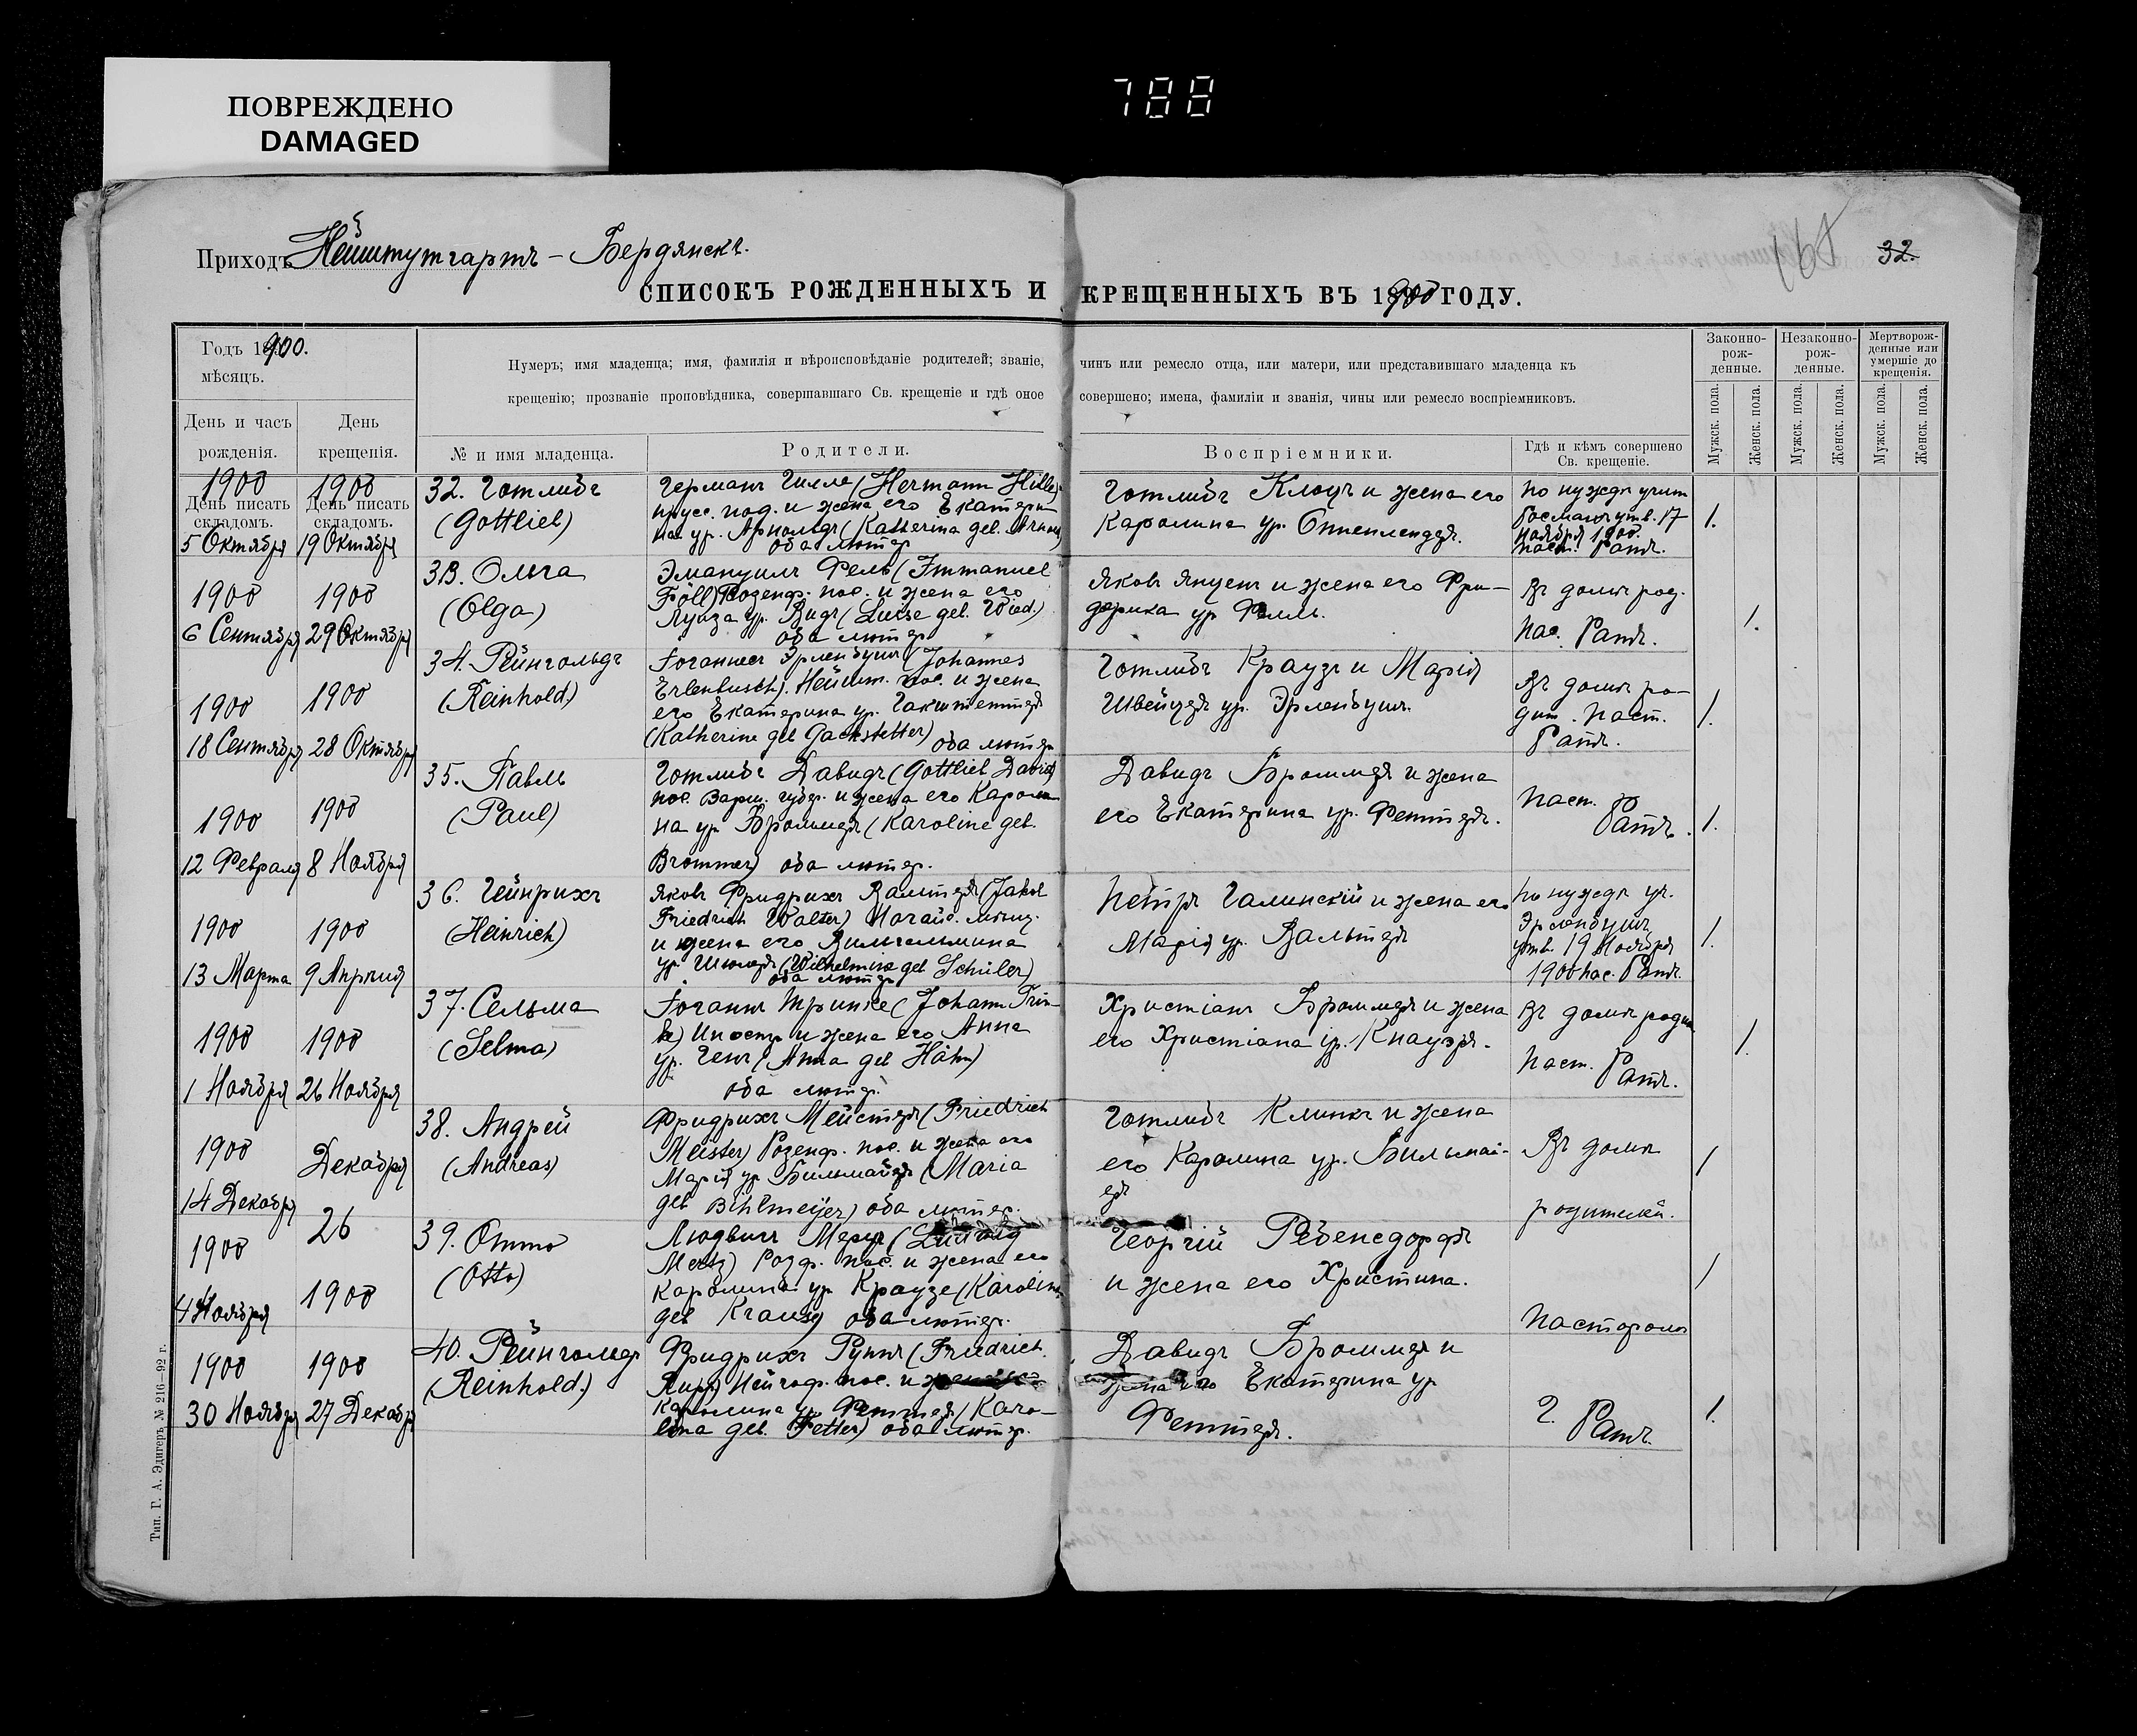 ПОВРЕЖДЕНО
DAMAGED
788
Приходъ Нейштутгартъ – Бердянскъ.
32.
СПИСОКЪ РОЖДЕННЫХЪ И КРЕЩЕННЫХЪ ВЪ 1900 ГОДУ.
Годъ 1900.
мѣсяцъ.
День и часъ рожденія.
День крещенія.
Нумеръ; имя младенца; имя, фамилія и вѣроисповѣданіе родителей; званіе, чинъ или ремесло отца, или матери, или представившаго младенца къ
крещенію; прозваніе проповѣдника, совершавшаго Св. крещеніе и гдѣ оное совершено; имена, фамиліи и званія, чины или ремесло воспріемниковъ.
№ и имя младенца.
Родители.
Воспріемники.
Гдѣ и кѣмъ совершено
Св. крещеніе.
Законно-
рож-
денные.
Незаконно-
рож-
денные.
Мертворож-
денные или
умершіе до
крещенія.
Мужск. пола.
Женск. пола.
Мужск. пола.
Женск. пола.
Мужск. пола.
Женск. пола.
1900
День писать
складомъ.
5 Октября
1900
День писать
складомъ.
19 Октября
32. Готлибъ
(Gottlieb)
Германъ Гилле (Hermann Hille)
прусс. под. и жена его Екатери-
на ур. Арнольдъ (Katherina geb. Arnold)
оба лютер.
Готлибъ Клоцъ и жена его
Каролина ур.
по нуждѣ учит
утв. 17
ноября 1900.
паст. Ратъ.
1.
1900
6 Сентября
1900
29 Октября
33. Ольга
(Olga)
Эмануилъ Фелль (Immanuel
Föll) Розенф. пос. и жена его
Луиза ур. Видъ (Luise geb. Wied.)
оба лютер
Яковъ Янценъ и жена его Фри-
дерика ур Фелль.
Въ домѣ род.
Пас. Ратъ.
1.
1900
18 Сентября
1900
28 Октября
34. Рейнгольдъ
(Reinhold)
Іоганнесъ Эрленбушъ (Johannes
Erlenbusch). Нейшт. пос. и жена
его Екатерина ур. Гакштеттеръ
(Katherine geb Gackstetter) оба лютер
Готлибъ Краузъ и Марія
Швейцеръ ур. Эрленбушъ.
Въ домѣ ро-
дит. Паст.
Ратъ.
1.
1900
12 Февраля
1900
8 Ноября
35. Павлъ
(Paul)
Готлибъ Давидъ (Gottlieb David)
пос. Варш. губер. и жена его Кароли
на ур Броммеръ (Karoline geb.
Brommer) оба лютер.
Давидъ Броммеръ и жена
его Екатерина ур. Феттеръ.
Паст.
Ратъ.
1.
1900
13 Марта
1900
9 Апрѣля
36. Гейнрихъ
(Heinrich)
Яковъ Фридрихъ Валтеръ (Jakob
Friedrich Walter) Ногайс. мѣщ.
и жена его Вильгельмина
ур. Шюлеръ (Wilhelmine geb Schüler)
оба лютер
Петръ Галинскій и жена его
Марія ур. Вальтеръ
по нуждѣ уч.
Эрленбушъ,
утв. 19 Ноября
1900 пас. Ратъ.
1.
1900
1 Ноября
1900
26 Ноября
37. Сельма
(Selma)
Іоганнъ Тринке (Johann Trin-
ke) Иностр и жена его Анна
ур. Генъ (Anna geb Hähn)
оба лютер.
Христіанъ Броммеръ и жена
его Христіана ур. Кнауэръ.
Въ домѣ родит
паст. Ратъ.
1.
1900
14 Декабря
Декабря
26
38. Андрей
(Andreas)
Фридрихъ Мейстеръ (Friedrich
Meister) Розенф. пос. и жена его
Марія ур Бильмайеръ (Maria
geb Bihlmeijer) оба лютер.
Готлибъ Клинкъ и жена
его Каролина ур. Бильмай-
еръ
Въ домѣ
родителей.
1
1900
4 Ноября
1900
39. Отто
(Otto)
Людвигъ Мерцъ (Ludwig
Mertz) Розф. пос. и жена его
Каролина ур Краузе (Karoline
geb Krause) оба лютер.
Георгій Ребенсдорфъ
и жена его Христина.
Пасторомъ
1
1900
30 Ноября
1900
27 Декабря
40. Рейнгольдъ
(Reinhold.)
Фридрихъ Руппъ (Friedrich
Rupp) Нейгоф. пос. и жена его
Каролина ур. Феттеръ (Karo-
lina geb. Fetter) оба лютер.
Давидъ Броммеръ и
жена его Екатерина ур
Феттеръ.
Г. Ратъ.
1.
Тип. Г. А. Эдигеръ № 216—92 г.